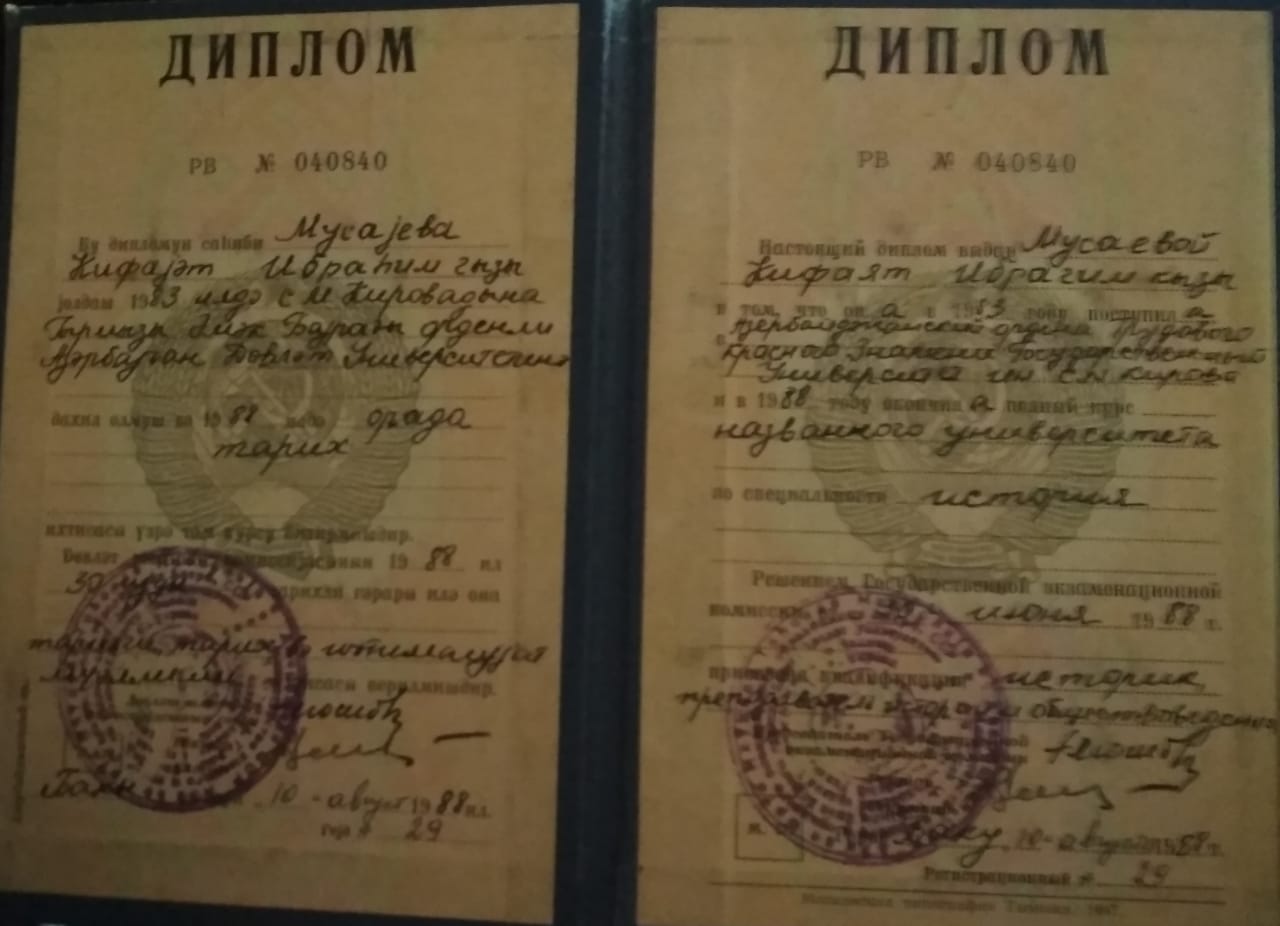 ДИПЛОМ
РВ № 040840
Бу дипломун саһиби Мусајева
Кифајәт Ибраһим гызы
1983 илдә С М Кировадына
Гырмызы Әмәк Бајрағы орденли
Азәрбајҹан Дөвләт Университетинә
дахил олмуш вә 1988 илдә орада
тарих
ихтисасы үзрә там курсу битирмишдир.
Дөвләт 1988 ил
30 тарихли гәрары илә она
тарих вә
верилмишдир.
Бакы 10 - август 1988 ил.
29
ДИПЛОМ
РВ № 040840
Настоящий диплом выдан Мусаевой
Кифаят Ибрагим кызы
в том, что он а в 1983 году поступил а
в Азербайджанский ордена Трудового
Красного Знамени Государственный
Университет им С.М Кирова
и в 1988 году окончил а полный курс
названного университета
по специальности история
Решением Государственной экзаменационной
комиссии июня 1988 г.
присвоена квалификация историк,
преподаватель истории и обществоведения
М.
Баку 10 - август 1988 г.
Регистрационный № 29